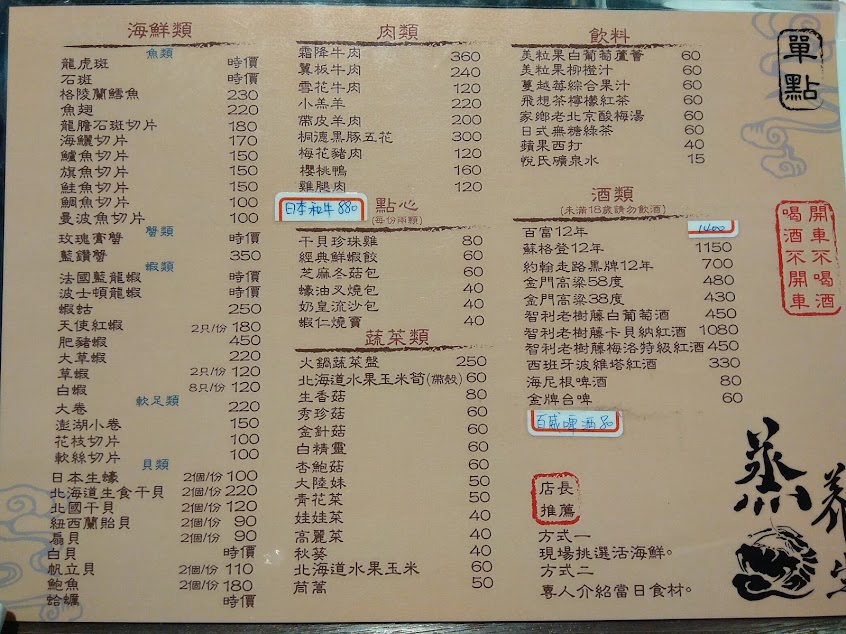 海鮮類
魚類
龍虎斑 時價
石斑 時價
格陵蘭鱈魚 230
魚翅 220
龍膽石斑切片 180
海鱺切片 170
鱸魚切片 150
旗魚切片 150
鮭魚切片 150
鯛魚切片 100
曼波魚切片 100
蟹類
玫瑰膏蟹 時價
藍鑽蟹 350
蝦類
法國藍龍蝦 時價
波士頓龍蝦 時價
蝦蛄 250
天使紅蝦 2只/份 180
肥豬蝦 450
大草蝦 220
草蝦 2只/份 120
白蝦 8只/份 120
軟足類
大卷 220
澎湖小卷 150
花枝切片 100
軟絲切片 100
貝類
日本生蠔 2個/份 100
北海道生食干貝 2個/份 220
北國干貝 2個/份 120
紐西蘭貽貝 2個/份 90
扇貝 2個/份 90
白貝 時價
帆立貝 2個/份 110
鮑魚 2個/份 180
蛤蠣 時價
肉類
霜降牛肉 360
翼板牛肉 240
雪花牛肉 120
小羔羊 220
帶皮羊肉 200
桐德黑豚五花 300
梅花豬肉 120
櫻桃鴨 160
雞腿肉 120
日本和牛 880
點心
(每份兩顆)
干貝珍珠雞 80
經典鮮蝦餃 60
芝麻冬菇包 60
蠔油叉燒包 40
奶皇流沙包 40
蝦仁燒賣 40
蔬菜類
火鍋蔬菜盤 250
北海道水果玉米筍(帶殼) 60
生香菇 80
秀珍菇 60
金針菇 60
白精靈 60
杏鮑菇 60
大陸妹 50
青花菜 50
娃娃菜 40
高麗菜 40
秋葵 40
北海道水果玉米 60
茼萵 50
飲料
美粒果白葡萄蘆薈 60
美粒果柳橙汁 60
蔓越莓綜合果汁 60
飛想茶檸檬紅茶 60
家鄉老北京酸梅湯 60
日式無糖綠茶 60
蘋果西打 40
悅氏礦泉水 15
酒類
(未滿18歲請勿飲酒)
百富12年 1400
蘇格登12年 1150
約翰走路黑牌12年 700
金門高粱58度 480
金門高粱38度 430
智利老樹藤白葡萄酒 450
智利老樹藤卡貝納紅酒 1080
智利老樹藤梅洛特級紅酒 450
西班牙波維塔紅酒 330
海尼根啤酒 80
金牌台啤 60
百威啤酒 80
店長
推薦
方式一
現場挑選活海鮮。
方式二
專人介紹當日食材。
單點
開車不喝酒
喝酒不開車
蒸
養生